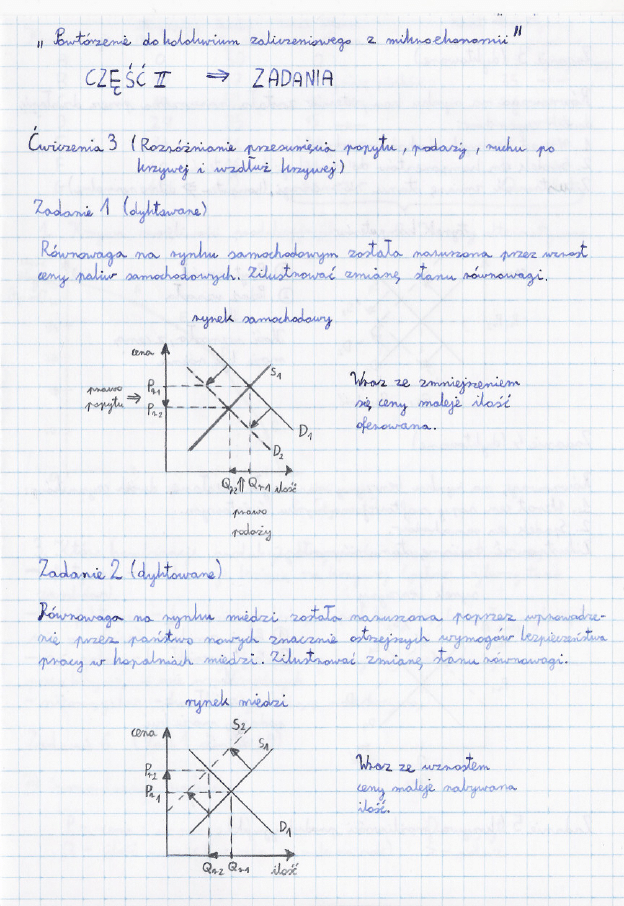 „Powtórzenie do kolokwium zaliczeniowego z mikroekonomii"
CZĘŚĆ II ⇒ ZADANIA
Ćwiczenia 3 (Rozróżnianie przesunięcia popytu, podaży, ruchu po
krzywej i wzdłuż krzywej)
Zadanie 1 (dyktowane)
Równowaga na rynku samochodowym została naruszona przez wzrost
ceny paliw samochodowych. Zilustrować zmianę stanu równowagi.
rynek samochodowy
cena
S1
prawo
popytu ⇒
Pr1
Pr2
D1
D2
Qr2 ⇑ Qr1 ilość
prawo
podaży
Wraz ze zmniejszeniem
się ceny maleje ilość
oferowana.
Zadanie 2 (dyktowane)
Równowaga na rynku miedzi została naruszona poprzez wprowadze-
nie przez państwo nowych znacznie ostrzejszych wymogów bezpieczeństwa
pracy w kopalniach miedzi. Zilustrować zmianę stanu równowagi.
rynek miedzi
cena
S2
S1
Pr2
Pr1
D1
Qr2 Qr1 ilość
Wraz ze wzrostem
ceny maleje nabywana
ilość.